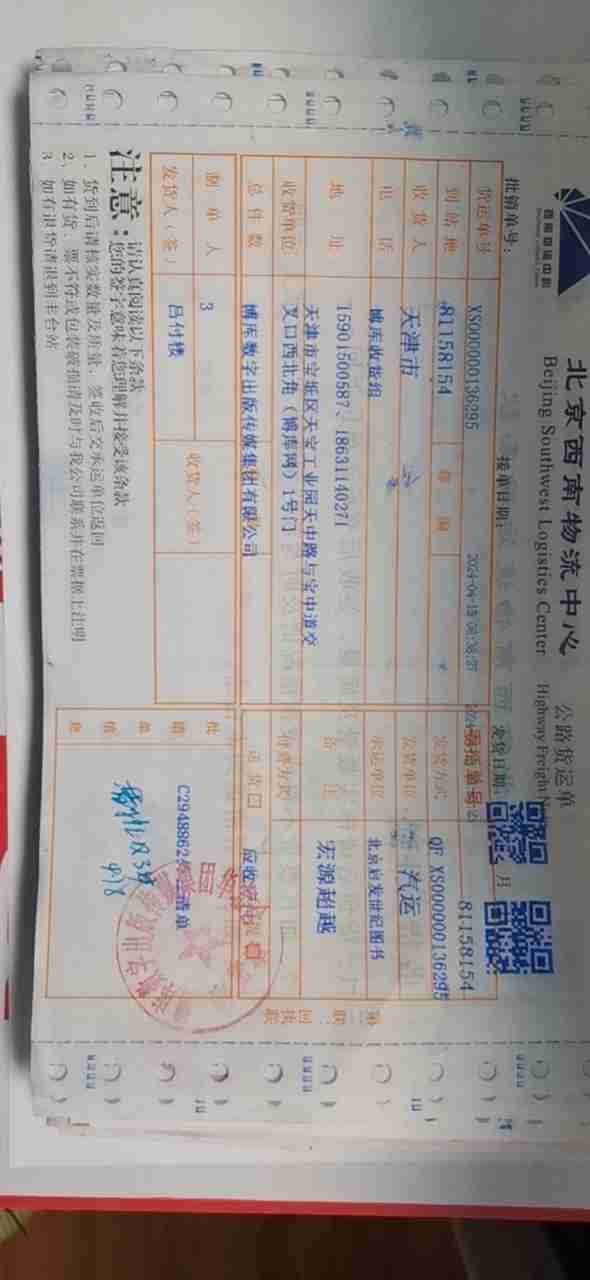 北京西南物流中心
公路货运单
Beijing Southwest Logistics Center
Highway Freight
批销单号：
接单日期：
2024-04-15 08:38:27
发货日期：
月
货运单号
XS0000000136295
81158154
到站地
81158154
发货方式
QF XS0000000136295
收货人
天津市
发货单位
汽运
电话
博库收货组
承运单位
北京启发世纪图书
地址
15901500587、18631140271
天津市宝坻区天宝工业园天中路与宝中道交
叉口西北角（博库网）1号门
备注
宏源超越
收货单位
付费方式
总件数
博库数字出版传媒集团有限公司
送货
制单人
3
收货人（签）
发货人（签）
吕付楼
批销单信息
第二联：回执联
注意：
请认真阅读以下条款
您的签字意味着您理解并接受该条款
1、货到后请核实数量及质量，签收后交承运单位返回
2、如有货、票不符或包装破损请及时与我公司联系并在票据上注明
3、如有退货请退到丰台站